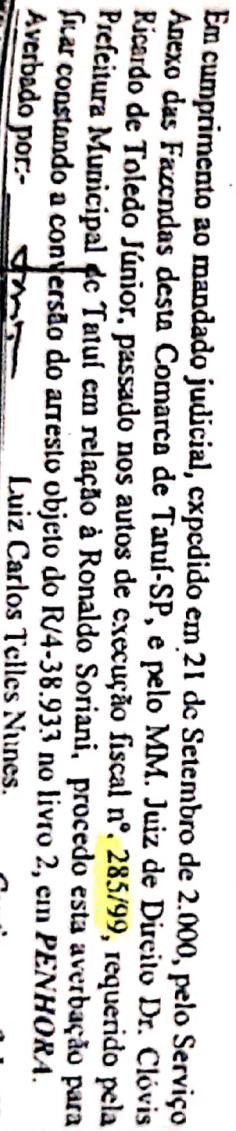 Em cumprimento ao mandado judicial, expedido em 21 de Setembro de 2.000, pelo Serviço
Anexo das Fazendas desta Comarca de Tatuí-SP, e pelo MM. Juiz de Direito Dr. Clóvis
Ricardo de Toledo Júnior, passado nos autos de execução fiscal nº. 285/99, requerido pela
Prefeitura Municipal de Tatuí em relação à Ronaldo Soriani, procedo esta averbação para
ficar constando a conversão do arresto objeto do R/4-38.933 no livro 2, em PENHORA.
Averbado por:- Luiz Carlos Telles Nunes.